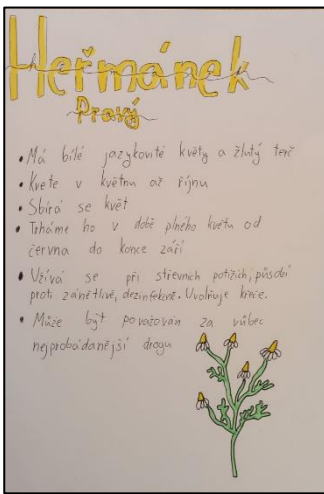 Heřmánek
Pravý
• Má bílé jazykovité květy a žlutý terč
• Kvete v květnu až říjnu
• Sbírá se květ
• Trháme ho v době plného květu od
června do konce září
• Užívá se při střevních potížích, působí
proti zánětlivě, dezinfekčně. Uvolňuje křeče.
• Může být považován za vůbec
nejprobádanější drogu